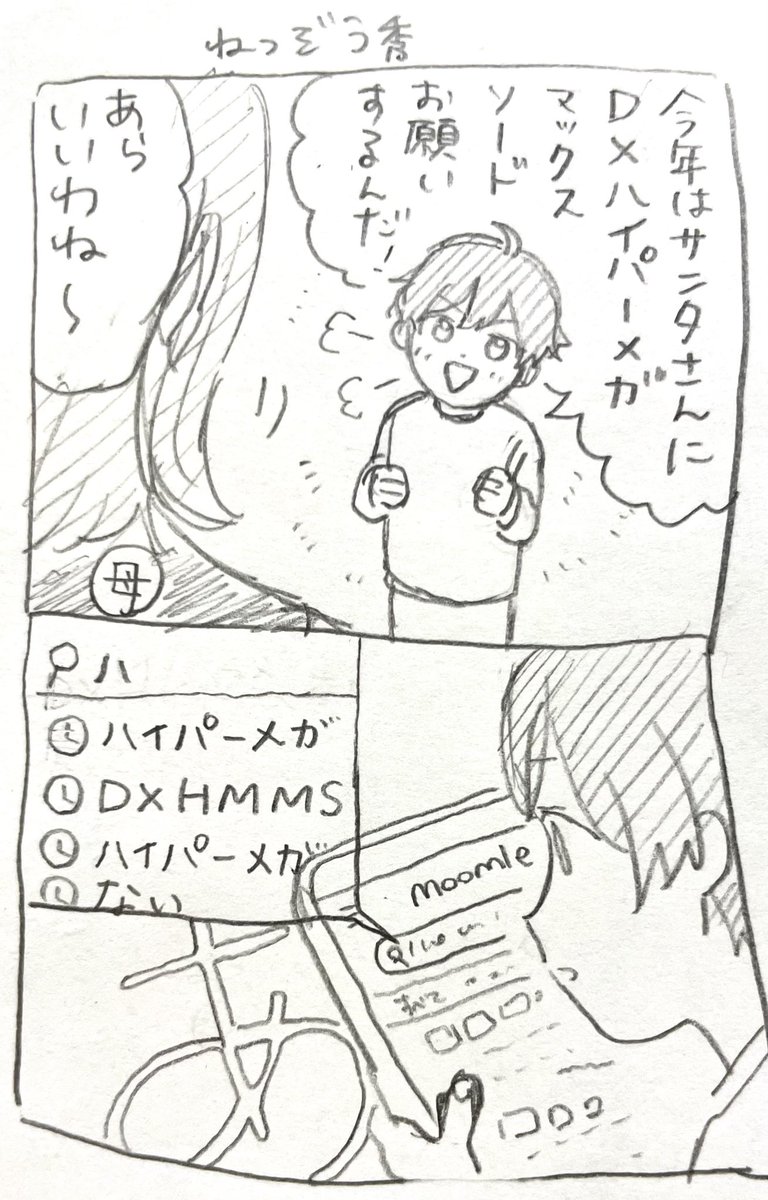 ねつぞう秀
今年はサンタさんに
DXハイパーメガ
マックス
ソード
お願い
するんだ!
あら
いいわね〜
母
ハ
ハイパーメガ
DXHMMS
ハイパーメガ
ない
Moomle